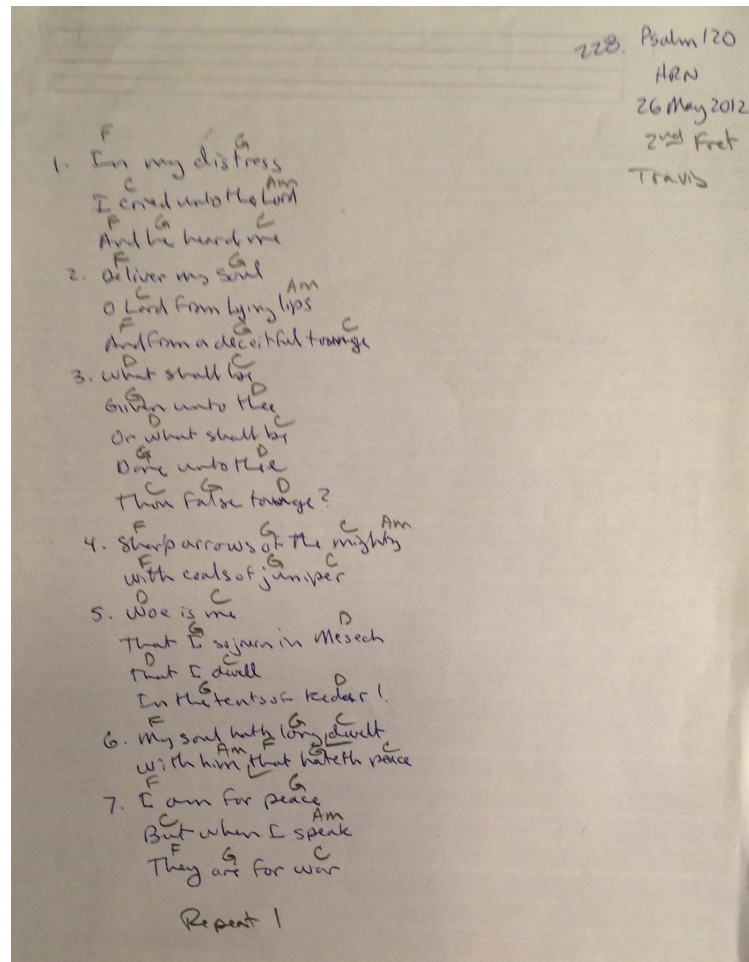 228. Psalm 120
HRN
26 May 2012
2nd Fret
Travis
F G
1. In my distress
C Am
I cried unto the Lord
F G C
And he heard me
F G
2. Deliver my soul
C Am
O Lord from lying lips
F G C
And from a deceitful tounge
D C
3. What shall be
G D
Given unto thee
D C
Or what shall be
G D
Done unto thee
C G D
Thou false tounge?
F G C Am
4. Sharp arrows of the mighty
F G C
with coals of juniper
D C
5. Woe is me
G D
That I sojourn in Mesech
D C
That I dwell
G D
In the tents of Kedar!
F G C
6. My soul hath long dwelt
Am F G C
with him that hateth peace
F G
7. I am for peace
C Am
But when I speak
F G C
They are for war
Repeat 1